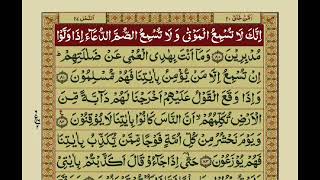 اَمَّنْ خَلَقَ ٢٠
اَلنَّمْل ٢٧
اِنَّكَ لَا تُسْمِعُ الْمَوْتٰى وَ لَا تُسْمِعُ الصُّمَّ الدُّعَآءَ اِذَا وَلَّوْا
مُدْبِرِيْنَ ﴿٨٠﴾ وَمَاۤ اَنْتَ بِهٰدِى الْعُمْىِ عَنْ ضَلٰلَتِهِمْ ؕ
اِنْ تُسْمِعُ اِلَّا مَنْ يُّؤْمِنُ بِاٰيٰتِنَا فَهُمْ مُّسْلِمُوْنَ ﴿٨١﴾
وَ اِذَا وَقَعَ الْقَوْلُ عَلَيْهِمْ اَخْرَجْنَا لَهُمْ دَآبَّةً مِّنَ
الْاَرْضِ تُكَلِّمُهُمْ ۙ اَنَّ النَّاسَ كَانُوْا بِاٰيٰتِنَا لَا يُوْقِنُوْنَ ﴿٨٢﴾
وَ يَوْمَ نَحْشُرُ مِنْ كُلِّ اُمَّةٍ فَوْجًا مِّمَّنْ يُّكَذِّبُ بِاٰيٰتِنَا
فَهُمْ يُوْزَعُوْنَ ﴿٨٣﴾ حَتّٰۤى اِذَا جَآءُوْ قَالَ اَكَذَّبْتُمْ بِاٰيٰتِىْ